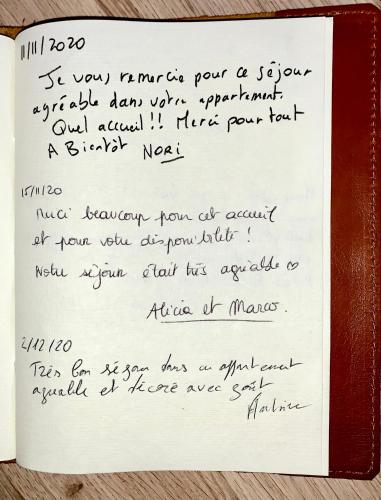 11/11/2020
Je vous remercie pour ce séjour
agréable dans votre appartement.
Quel accueil !! Merci pour tout
A Bientôt NORI
15/11/20
Merci beaucoup pour cet accueil
et pour votre disponibilité !
Notre séjour était très agréable ♡
Alicia et Marco.
2/12/20
Très bon séjour dans un appartement
agréable et décoré avec goût